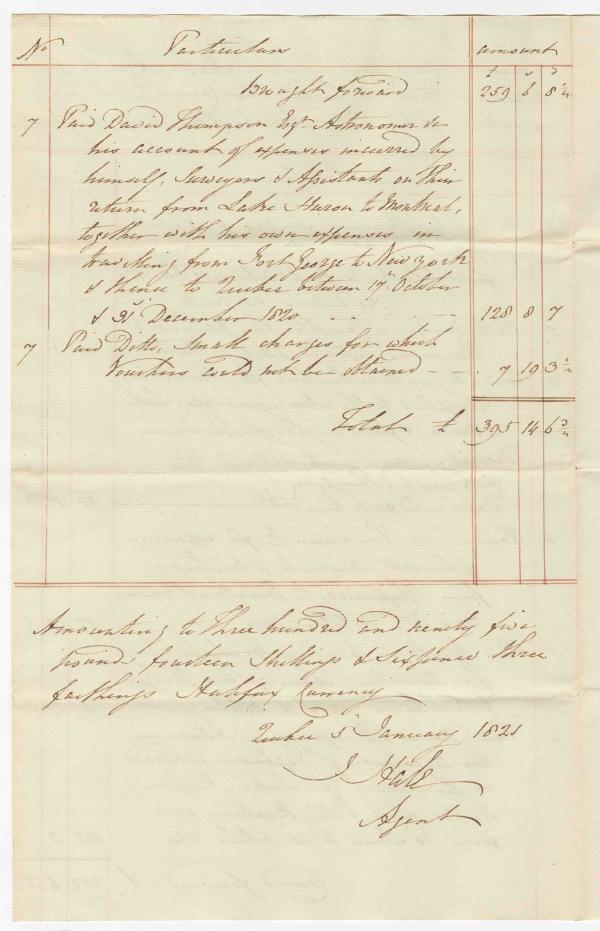 No Particulars amount
£ s d
Brought forward 259 6 8 1/2
7 Paid David Thompson Esqr. Astronomer &c
his account of expenses incurred by
himself, Surveyors & Assistants on their
return from Lake Huron to Montreal,
together with his own expenses in
travelling from Fort George to New York
& thence to Quebec between 17th October
& 31st December 1820 128 8 7
7 Paid Ditto, small charges for which
Vouchers could not be obtained 7 19 3 1/2
Total £ 395 14 6 3/4
Amounting to Three hundred and ninety five
pounds fourteen Shillings & Sixpence three
farthings Halifax Currency
Quebec 5th January 1821
J Hale
Agent